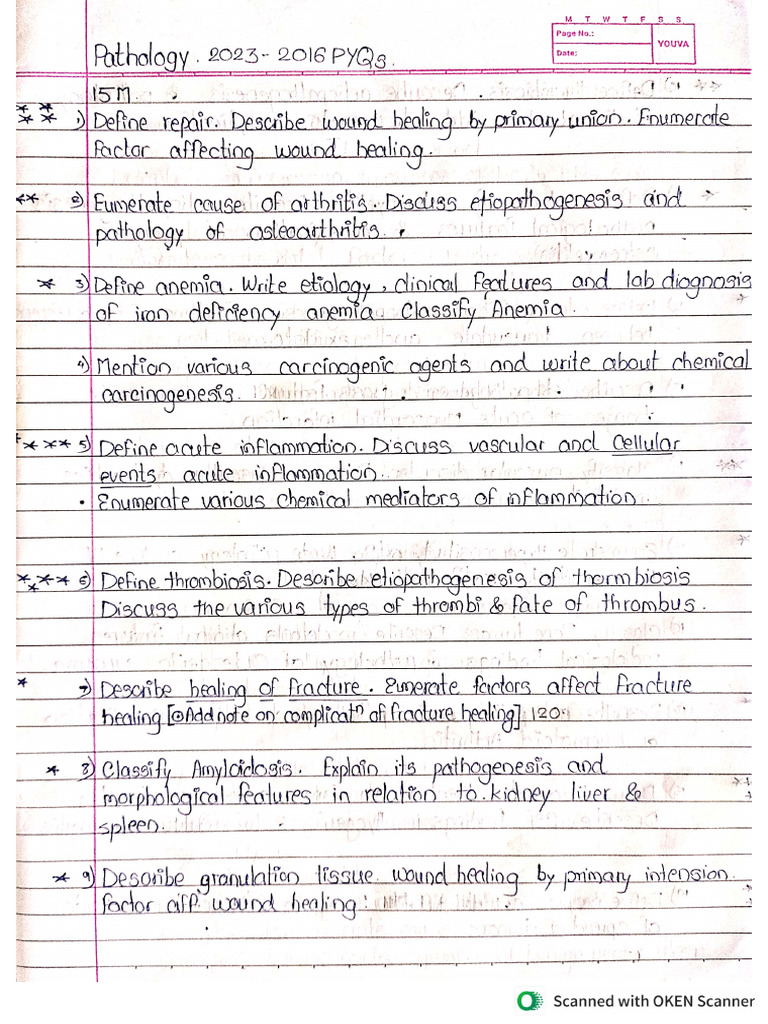 M T W T F S S
Page No.:
Date:
YOUVA
Pathology. 2023-2016 PYQs.
15M.
1) Define repair. Describe wound healing by primary union. Enumerate
factor affecting wound healing.
2) Eumerate cause of arthritis. Discuss etiopathogenesis and
pathology of osteoarthritis.
3) Define anemia. Write etiology, clinical features and lab diagnosis
of iron deficiency anemia Classify Anemia.
4) Mention various carcinogenic agents and write about chemical
carcinogenesis.
5) Define acute inflammation. Discuss vascular and cellular
events acute inflammation.
• Enumerate various chemical mediators of inflammation.
6) Define thrombiosis. Describe etiopathogenesis of thormbiosis
Discuss the various types of thrombi & fate of thrombus.
7) Describe healing of fracture. Eumerate factors affect fracture
healing [⊙Add note on complicatn of fracture healing] 120.
8) Classify Amyloidosis. Explain its pathogenesis and
morphological features in relation to kidney liver &
spleen.
9) Describe granulation tissue wound healing by primary intension.
factor aff. wound healing.
Scanned with OKEN Scanner